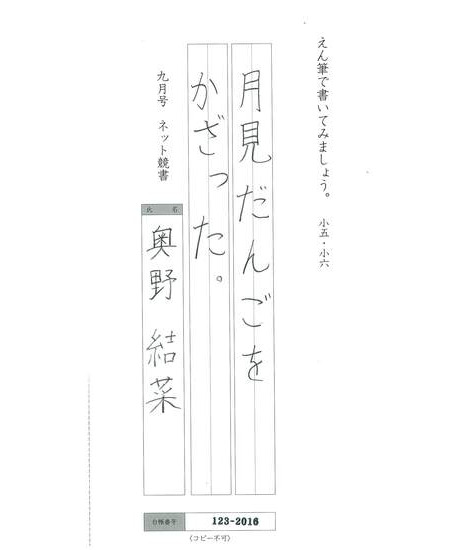 えん筆で書いてみましょう。 小五・小六
月見だんごを
かざった。
九月号 ネット競書
氏 名
奥野 結菜
台帳番号 123-2016
(コピー不可)